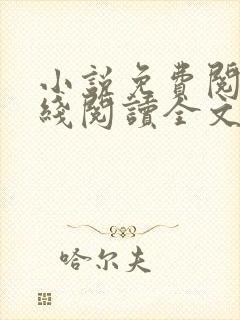 小說免費閱
綫閱讀全文
哈尔夫